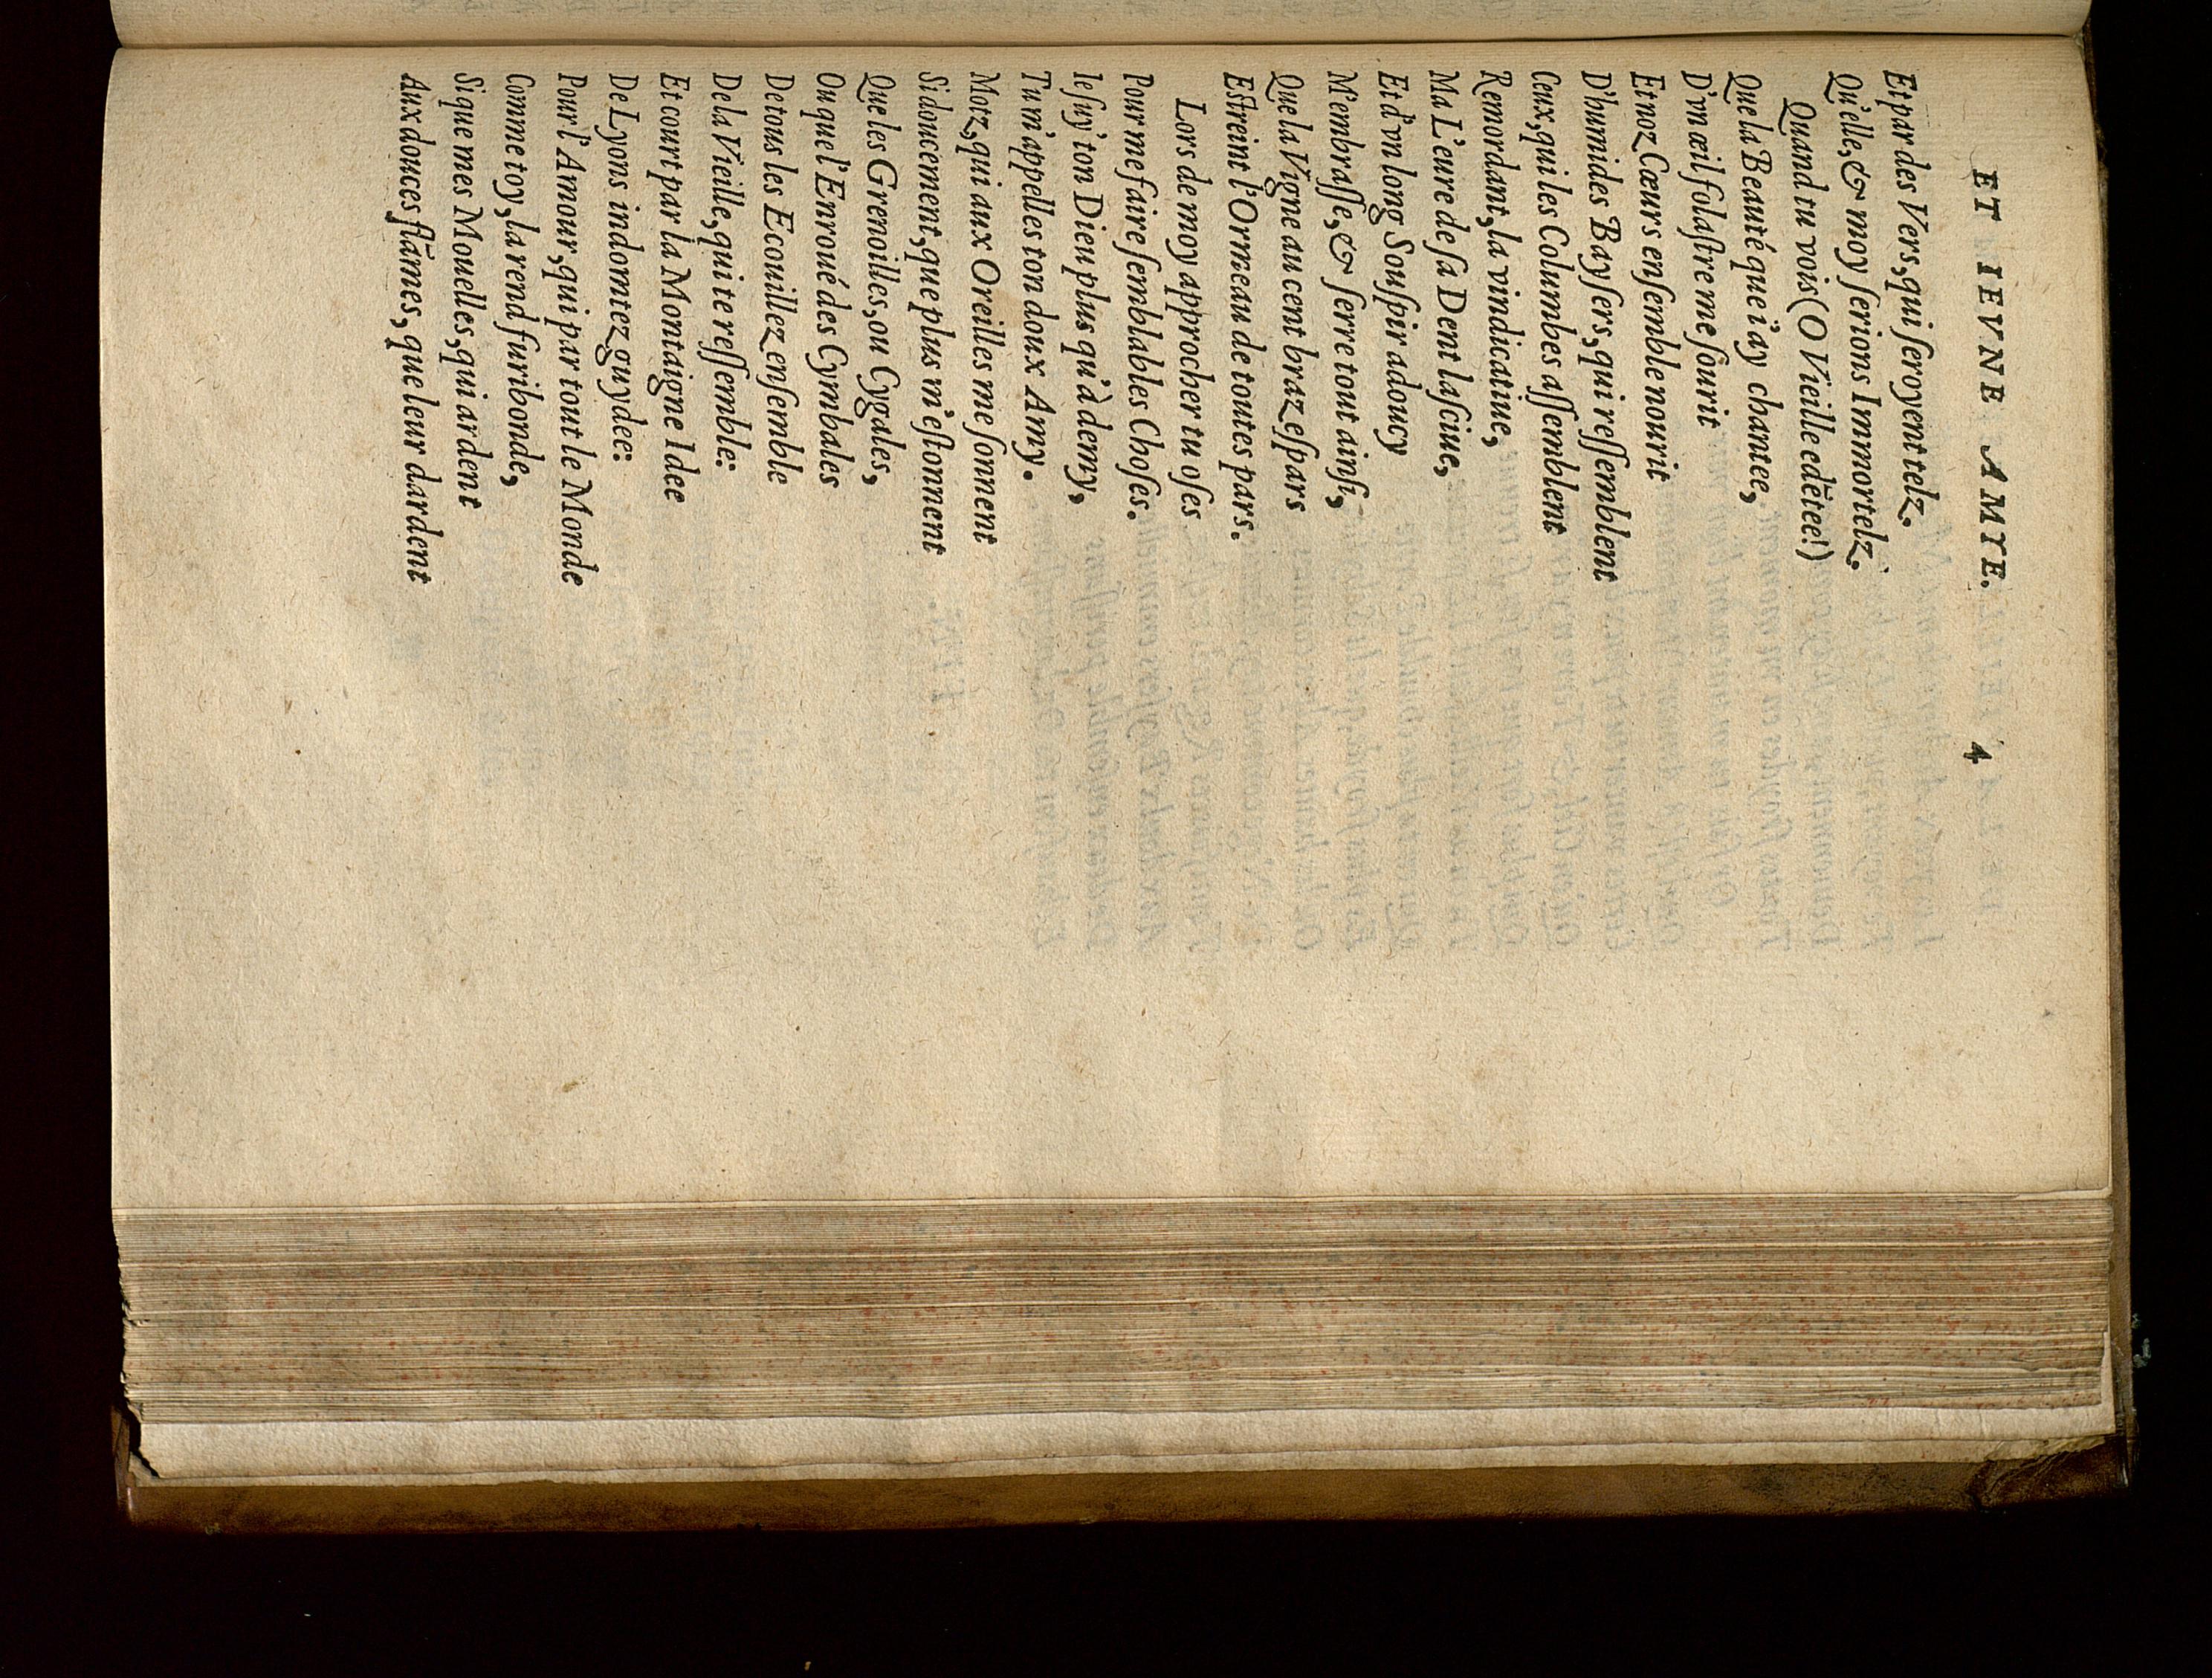 ET IEVNE AMYE. 4
Et par des Vers, qui ſeroyent telz.
Qu'elle, & moy ſerions Immortelz.
Quand tu vois (O Vieille edẽtee!)
Que la Beauté que i'ay chantee,
D'vn œil folaſtre me ſourit
Et noz Cœurs enſemble nourit
D'humides Bayſers, qui reſſemblent
Ceux, qui les Columbes aſſemblent
Remordant, la vindicatiue,
Ma L'eure de ſa Dent laſciue,
Et d'vn long Souſpir adoucy
M'embraſſe, & ſerre tout ainſi,
Que la Vigne au cent braz eſpars
Eſtreint l'Ormeau de toutes pars.
Lors de moy approcher tu oſes
Pour me faire ſemblables Choſes.
Ie ſuy' ton Dieu plus qu'à demy,
Tu m'appelles ton doux Amy.
Motz, qui aux Oreilles me ſonnent
Si doucement, que plus m'eſtonnent
Que les Grenoilles, ou Cygales,
Ou que l'Enroué des Cymbales
De tous les Ecouillez enſemble
De la Vieille, qui te reſſemble:
Et court par la Montaigne Idee
De Lyons indomtez guydee:
Pour l'Amour, qui par tout le Monde
Comme toy, la rend furibonde,
Si que mes Mouelles, qui ardent
Aux douces flãmes, que leur dardent